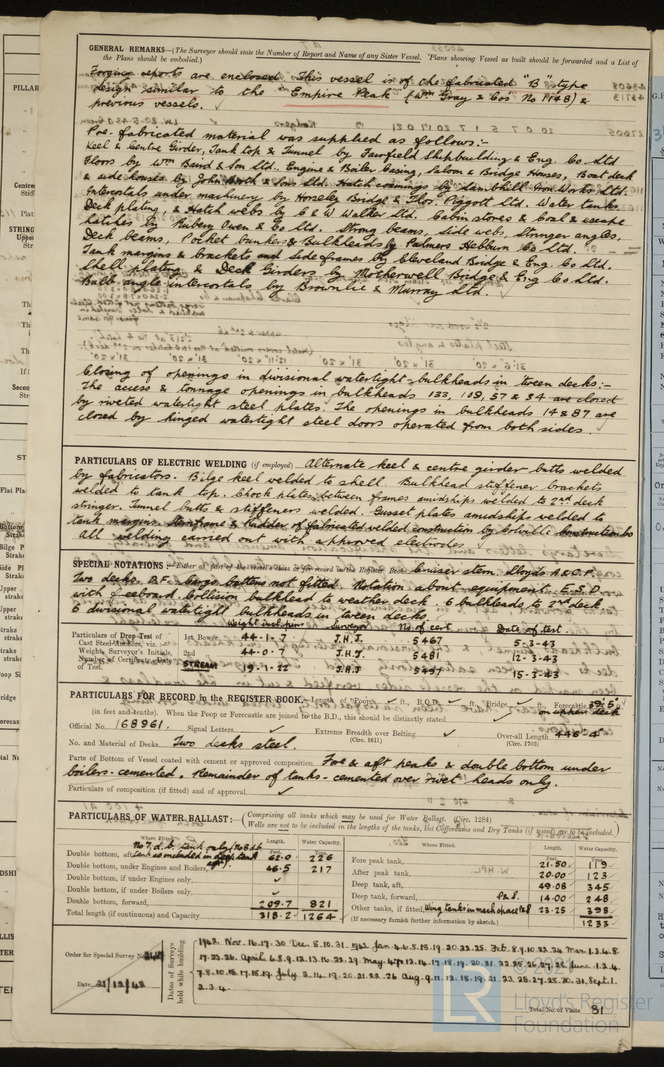 GENERAL REMARKS—(The Surveyor should state the Number of Report and Name of any Sister Vessel. Plans showing Vessel as built should be forwarded and a List of
the Plans should be embodied.)
Forging reports are enclosed. This vessel is of the fabricated "B" type
design similar to the "Empire Peak" (Wm Gray & Co's No 1148) &
previous vessels.
Pre-fabricated material was supplied as follows:-
Keel & Centre Girder, Tank top & Tunnel by Fairfield Shipbuilding & Eng. Co. Ltd
Floors by Wm Baird & Son Ltd., Engine & Boiler Casing, Saloon & Bridge Houses, Boat deck
& side houses by John & Sons Ltd. Hatch coamings by Lambhill Iron Works Ltd.
Intercostals under machinery by Horseley Bridge & Thos. Piggott Ltd. Water tanks
Deck plating & Hatch webs by C & W Walker Ltd. Cabin stores & Coal & escape
hatches by Rubery Owen & Co Ltd. Strong beams, side webs, Stringer angles,
Deck beams, Pocket bunkers & Bulkheads by Palmers Hebburn Co. Ltd.
Tank margins & brackets and side frames by Cleveland Bridge & Eng. Co. Ltd.
Shell plating & Deck Girders by Motherwell Bridge & Eng Co. Ltd.
Bulb angle intercostals by Brownlie & Murray Ltd.
Closing of openings in divisional watertight bulkheads in tween decks:-
The access & tonnage openings in bulkheads 133, 109, 57 & 34 are closed
by riveted watertight steel plates. The openings in bulkheads 14 & 87 are
closed by hinged watertight steel doors operated from both sides.
PARTICULARS OF ELECTRIC WELDING (if employed) Alternate keel & centre girder butts welded
by fabricators. Bilge keel welded to shell. Bulkhead stiffener brackets
welded to tank top. Chock plates between frames amidships welded to 2nd deck
stringer. Tunnel butts & stiffeners welded. Gusset plates amidships welded to
tank margins. Sternframe & rudder of fabricated welded construction by Colville Construction Co
All welding carried out with approved electrodes
SPECIAL NOTATIONS:— Either as part of the Vessel's class or for record in the Register Book. Cruiser stern. Lloyds A & C.P.
Two decks. D.F. Cargo battens not fitted. Notation about equipment. E.S.D.
with freeboard. Collision bulkhead to weather deck. 6 bulkheads to 2nd deck
6 divisional watertight bulkheads in tween decks.
Weight less pins Surveyor No of cert Date of test
Particulars of Drop Test of 1st Bower 44-1-7 J.H.J. 5467 5-3-43
Cast Steel Anchors, viz.
Weights, Surveyor's Initials, 2nd 44-0-7 J.H.J. 5481 12-3-43
Number of Certificate, Date
of Test. STREAM 19-1-22 J.H.J 5497 15-3-43
PARTICULARS FOR RECORD in the REGISTER BOOK.—Length of Poop ft., R.Q.D. ft., Bridge ft., Forecastle 39.5
on upper deck
(in feet and tenths). When the Poop or Forecastle are joined to the B.D., this should be distinctly stated
Official No. 168961. Signal Letters Extreme Breadth over Belting Over-all Length 446'-4"
(Circ. 1611) (Circ. 1703)
No. and Material of Decks Two decks steel.
Parts of Bottom of Vessel coated with cement or approved composition Fore & aft peaks & double bottom under
boilers-cemented. Remainder of tanks-cemented over rivet heads only.
Particulars of composition (if fitted) and of approval
PARTICULARS OF WATER BALLAST:— (Comprising all tanks which may be used for Water Ballast. (Circ. 1284)
Wells are not to be included in the lengths of the tanks, but Cofferdams and Dry Tanks (if tested) are to be included.
Where Fitted. Feet. Water Capacity. Where Fitted. Feet. Water Capacity.
Double bottom, aft 62.0 226 Fore peak tank, 21.50 119
Double bottom, under Engines and Boilers, 46.5 217 After peak tank, 20.00 123
Double bottom, if under Engines only, Deep tank, aft, 49.08 345
Double bottom, if under Boilers only, Deep tank, forward, P & S. 14.00 248
Double bottom, forward, 209.7 821 Other tanks, if fitted, Wing tanks in mach space P & S 23.25 398
Total length (if continuous) and Capacity 318.2 1264 (If necessary furnish further information by sketch.) 1233
Order for Special Survey No.
Date 31/12/42
Dates of Surveys held while building
1942. Nov. 16.17.30 Dec. 8.10.31. 1943 Jan 4.6.5.18.19.20.22.25. Feb. 8.9.10.23.24 Mar. 1.3.4.8.
17.23.26. April 6.8.9.12.13.16.22.29. May.
7.8.10.15.17.18.19. July 2.14.19.20.21.23.26 Aug. 9.11.12.18.19.21.23.25.27.28.30.31. Sept. 1.
2.3.4.
Total No. of Visits 81
© 2021
LR
Lloyd's Register
Foundation